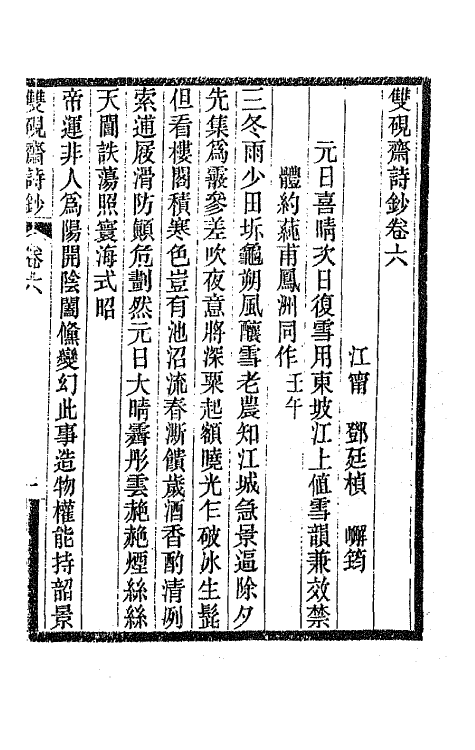 雙硯齋詩鈔卷六
江甯 鄧廷楨 嶰筠
元日喜晴次日復雪用東坡江上值雪韻兼效禁
體約蒓甫鳳洲同作壬午
三冬雨少田坼龜朔風釀雪老農知江城急景逼除夕
先集為霰參差吹夜意將深粟起額曉光乍破冰生髭
但看樓閣積寒色豈有池沼流春澌饋歲酒香酌清冽
索逋屐滑防顛危劃然元日大晴霽彤雲赩赩煙絲絲
天闓詄蕩照寰海式昭
帝運非人為陽開陰闔儵變幻此事造物權能持韶景
雙硯齋詩鈔 卷六 一